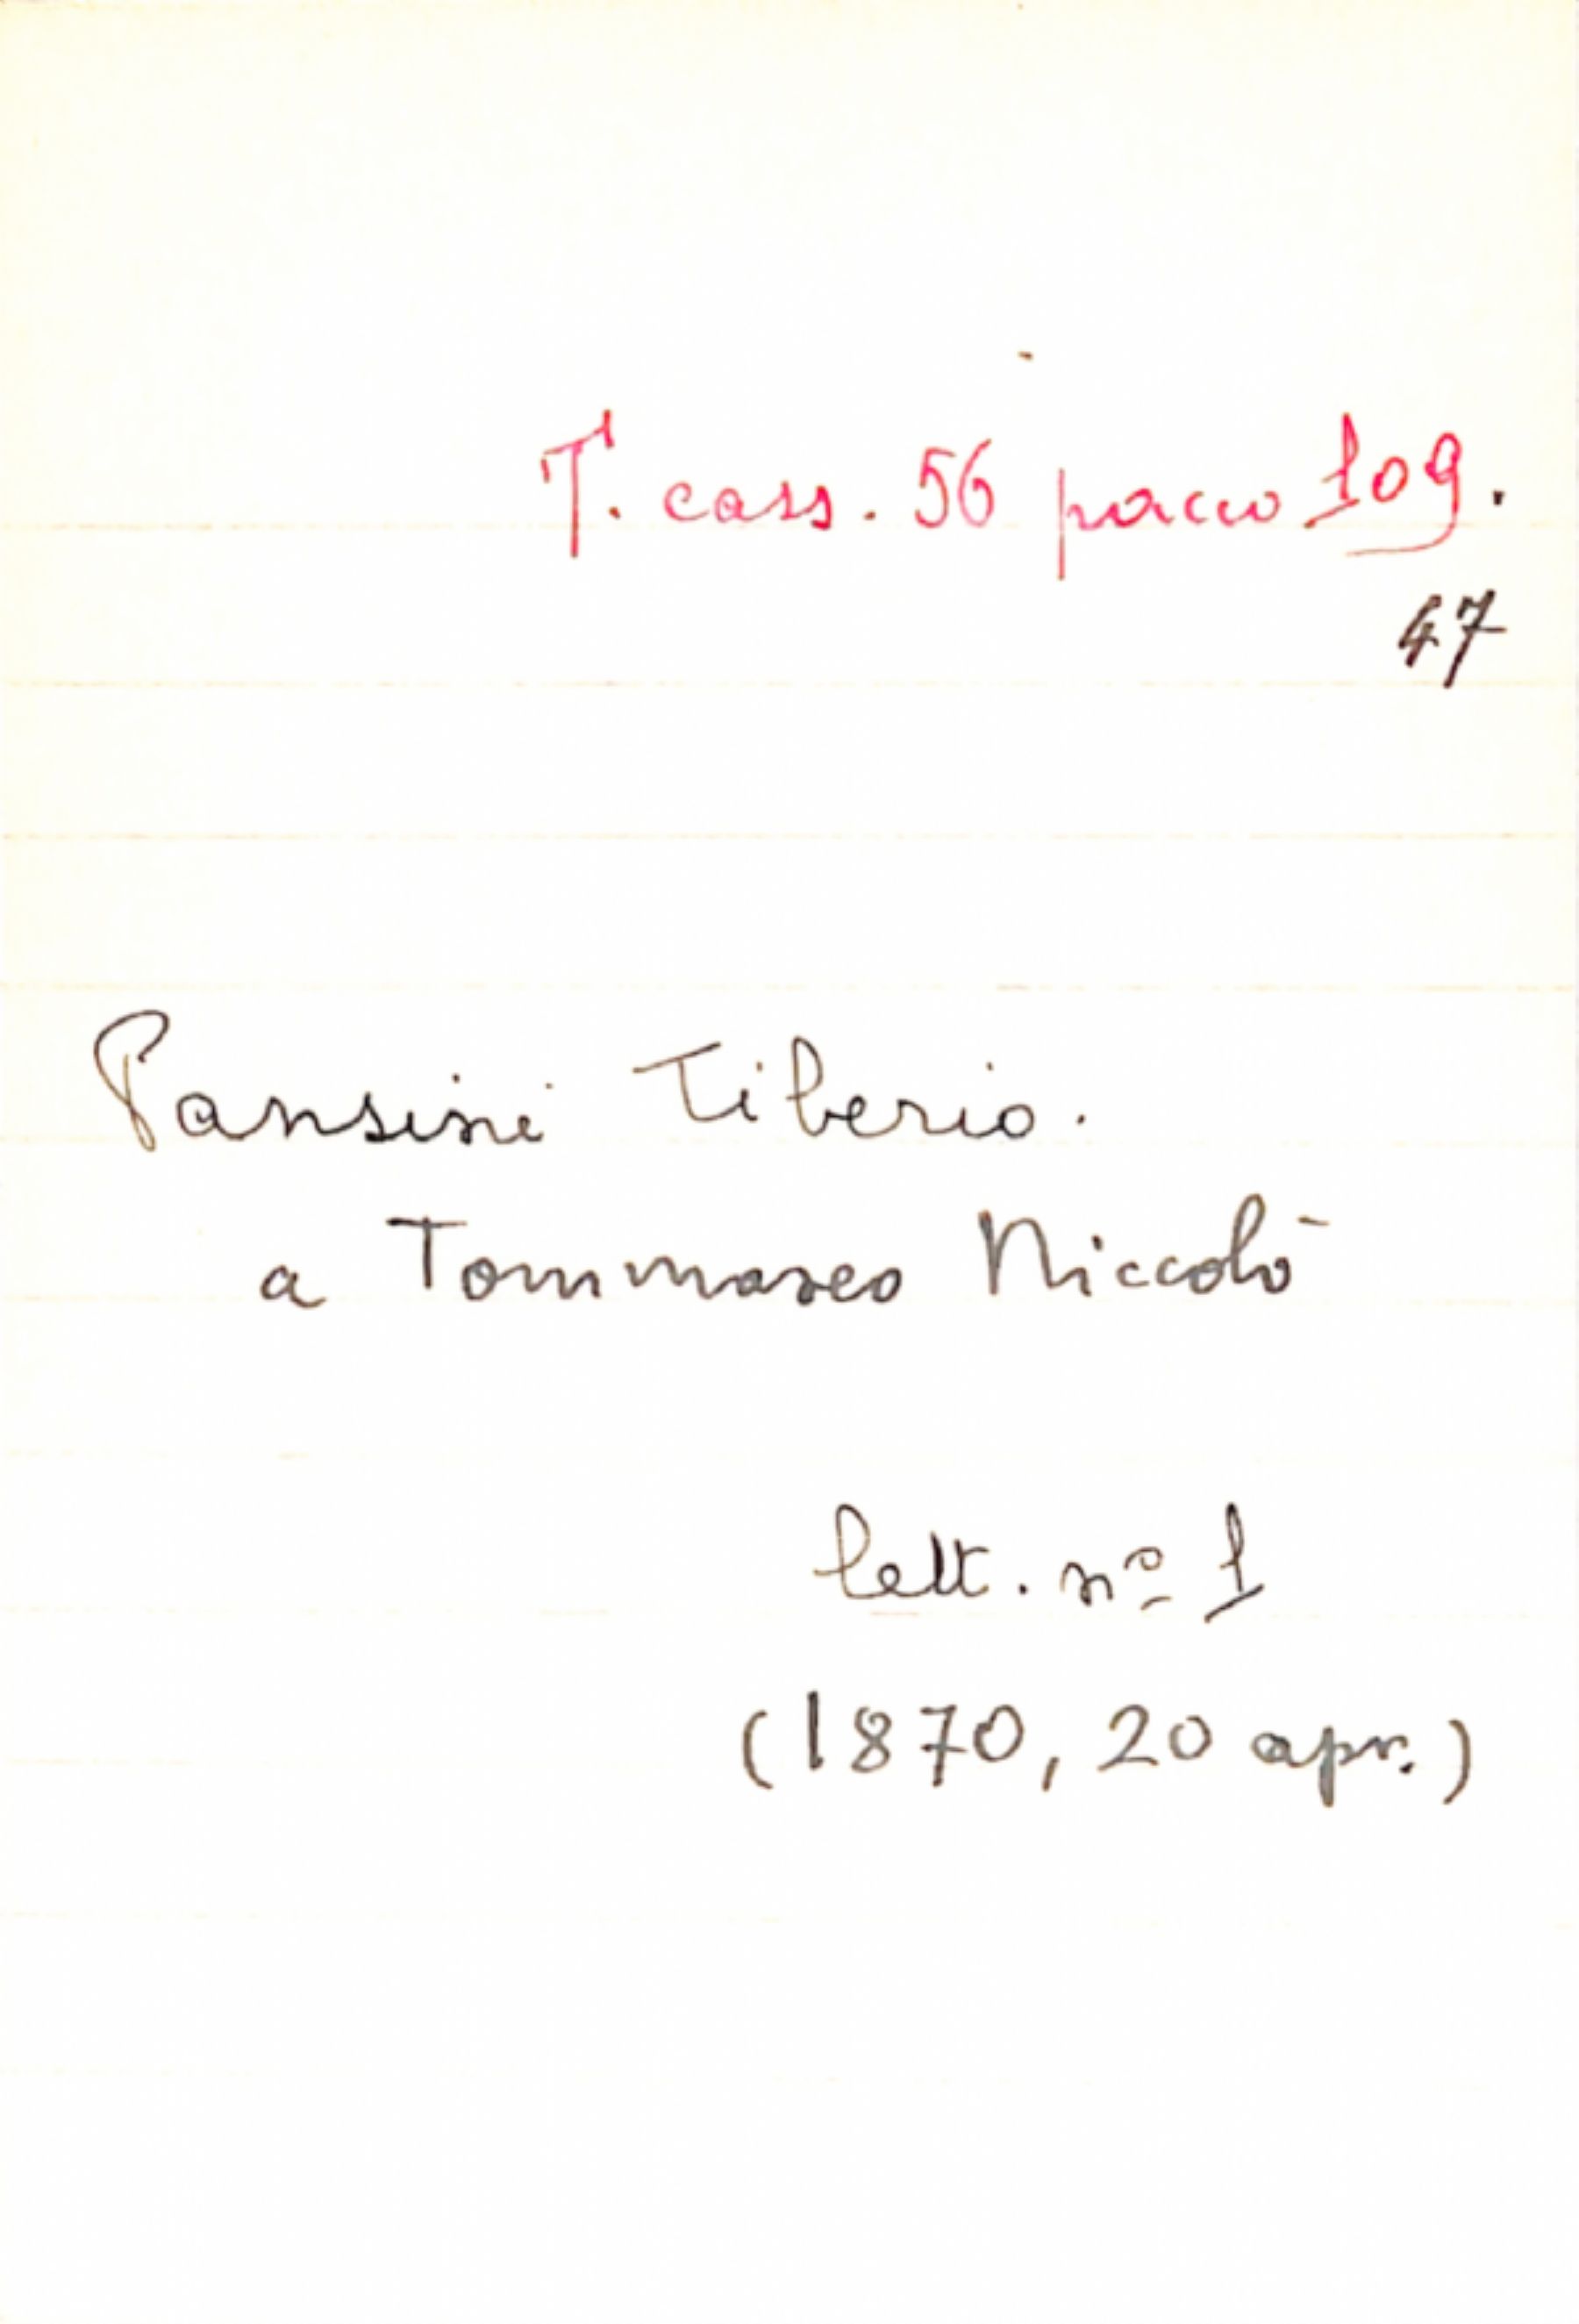 T. cass. 56 pacco 109.
47
Pansini Tiberio.
a Tommaseo Niccolò
lett. nº 1
(1870, 20 apr.)